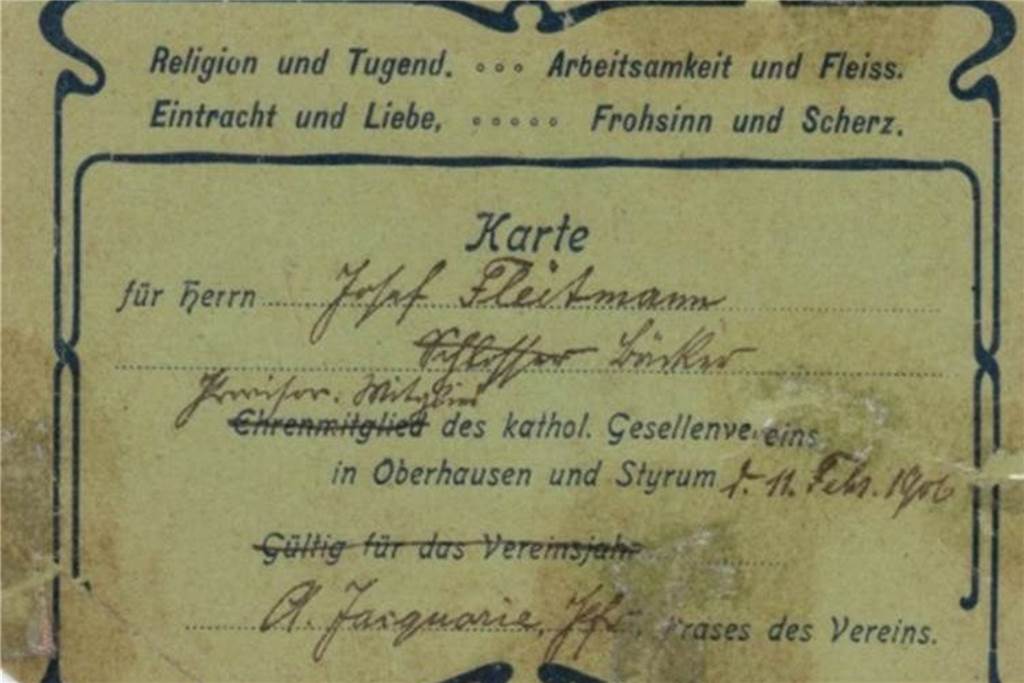 Religion und Tugend. ∘∘∘ Arbeitsamkeit und Fleiss.
Eintracht und Liebe, ∘∘∘∘∘ Frohsinn und Scherz.
Karte
für Herrn Josef Fleitmann
Schlosser Bäcker
Provisor. Mitglied
Ehrenmitglied des kathol. Gesellenvereins
in Oberhausen und Styrum d. 11. Febr. 1906
Gültig für das Vereinsjahr
A. Jacquorie, Präses des Vereins.